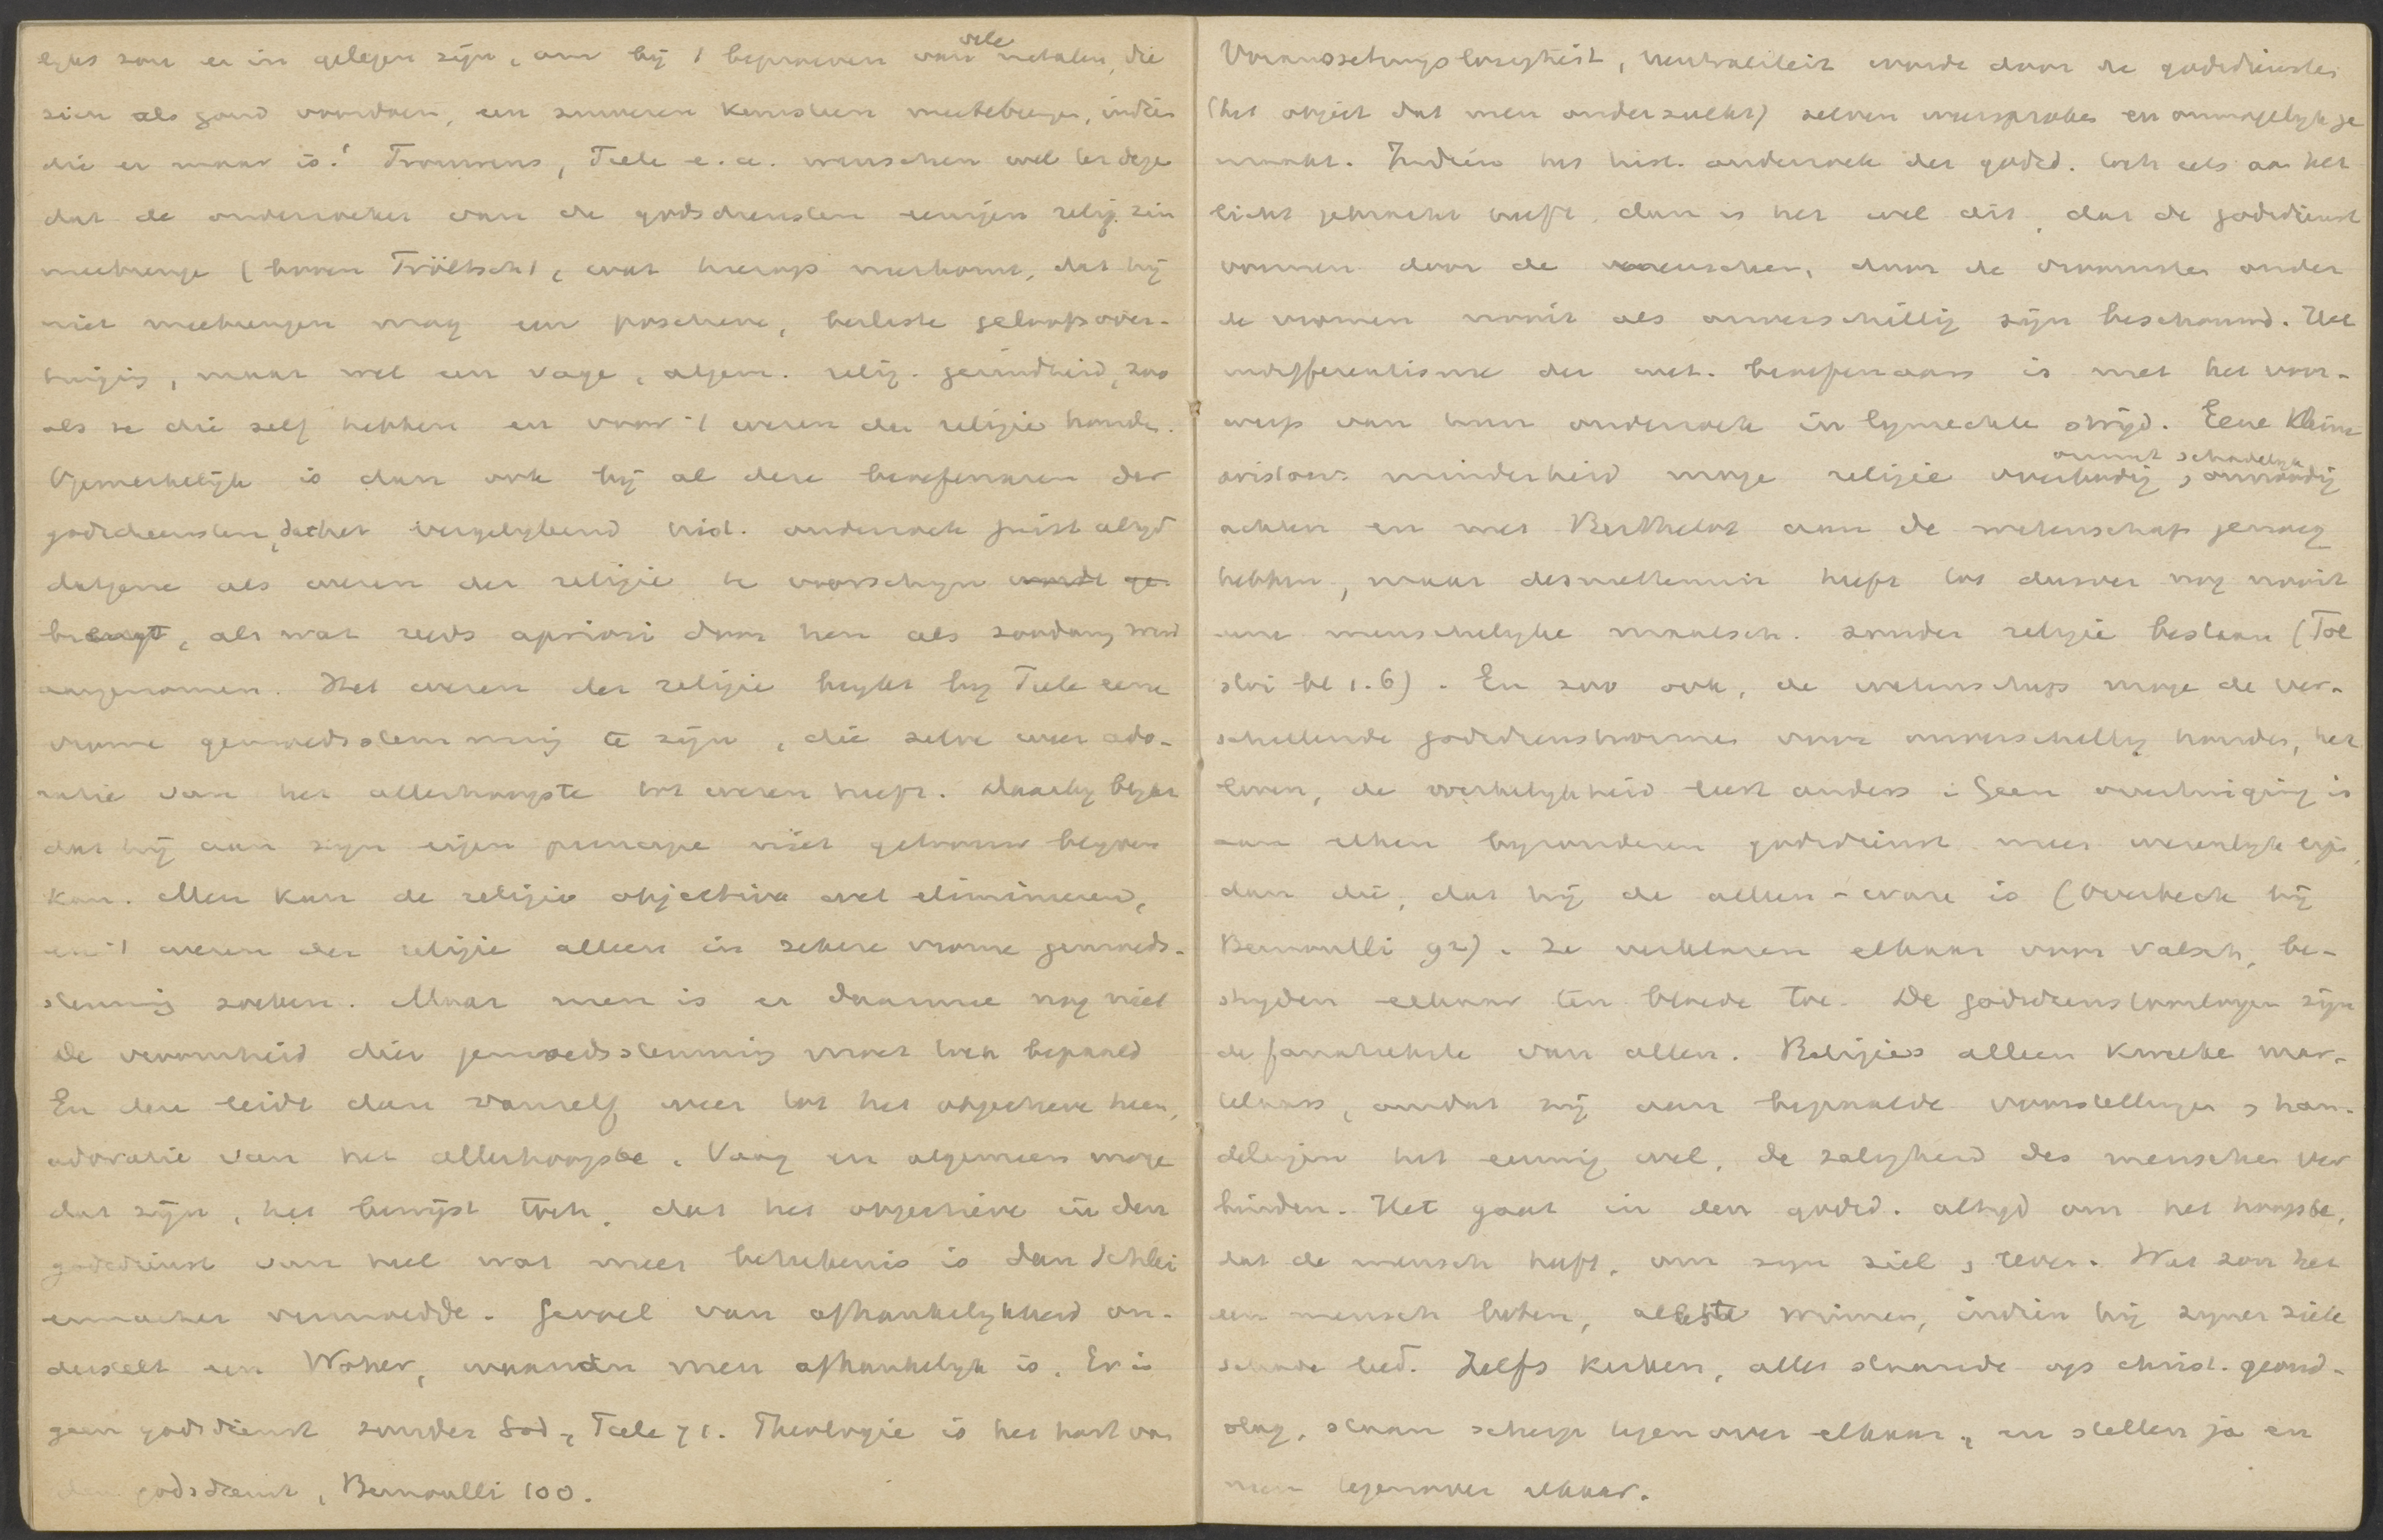 lyks zou er in gelegen zijn, om bij 't beproeven van vele metalen, die
zien als goud voordoen, een zuiveren kenisteen meetebrengen, indien
die er maar is! Trouwens, Tiele e.a. wenschen wel ter dege
dat de onderzoeker van de godsdiensten eenigen relig. zin
meebrenge (boven Tröltsch), wat hierop neerkomt, dat hij
niet meebrengen mag een positieve, besliste geloofsover-
tuiging, maar wel een vage, algem. relig. gezindheid, zoo
als ze die zelf hebben en voor 't wezen der religie houden.
Opmerkelijk is dan ook bij al deze beoefenaren der
godsdiensten, dat het vergelykend hist. onderzoek juist altyd
datgene als wezen der religie te voorschyn wordt ge
brengt, als wat reeds apriori door hen als zoodanig werd
aangenomen. Het wezen der religie blykt by Tiele eene
vrome gemoedsstemming te zijn, die zelve weer ado-
ratie van het allerhoogste tot wezen heeft. Daarby blykt
dat hij aan zijn eigen principe niet getrouw blyven
kan. Men kan de religio objectiva wel elimineren,
en 't wezen der religie alleen in zekere vrome gemoeds-
stemming zoeken. Maar men is er daarmee nog niet
De vroomheid dier gemoedsstemming moet toch bepaald
En deze leidt dan vanzelf weer tot het objectieve heen,
adoratie van het allerhoogste. Vaag en algemeen moge
dat zijn, het bewijst toch, dat het objectieve in den
godsdienst van heel wat meer beteekenis is dan Schlei
ermacher vermoedde. Gevoel van afhankelykheid on-
derstelt een Woher, waarvan men afhankelyk is. Er is
geen godsdienst zonder God, Tiele 71. Theologie is het hart van
den godsdienst, Bernoulli 100.
Voraussetzungslosigkeit, neutraliteit wordt door de godsdiensten
(het object dat men onderzoekt) zelven weersproken en onmogelyk ge
maakt. Indien het hist. onderzoek der godsd. toch iets aan het
licht gebracht heeft, dan is het wel dit, dat de godsdienst
vormen door de menschen, door de vroomsten onder
de vromen nooit als onverschillig zijn beschouwd. Het
indifferentisme der wet. beoefenaars is met het voor-
werp van hun onderzoek in lynrechte strijd. Eene kleine
aristocr. minderheid moge religie overbodig, onnut, schadelyk, onnoodig
achten en met Berthelot aan de wetenschap genoeg
hebben, maar desniettemin heeft tot dusver nog nooit
eene menschelyke maatsch. zonder religie bestaan (Tol
stoi bl 1.6). En zoo ook, de wetenschap moge de ver-
schillende godsdienstvormen voor onverschillig houden, het
leven, de werkelykheid leert anders: Geen overtuiging is
aan elken byzonderen godsdienst meer wezenlyk eigen,
dan die, dat hij de alleen-ware is (Overbeck bij
Bernoulli 92). Ze verklaren elkaar voor valsch, be-
stryden elkaar ten bloede toe. De godsdienstoorlogen zijn
de fanatiekste van allen. Religies alleen kweeken mar-
telaars, omdat zij aan bepaalde voorstellingen, han-
delingen het eeuwig wel, de zaligheid des menschen ver
binden. Het gaat in den godsd. altyd om het hoogste,
dat de mensch heeft, om zyn ziel, leven. Wat zou het
een mensch baten, alles te winnen, indien hij zyner ziele
schade leed. Zelfs kerken, alle staande op christ. grond-
slag, staan scherp tegenover elkaar, en stellen ja en
neen tegenover elkaar.